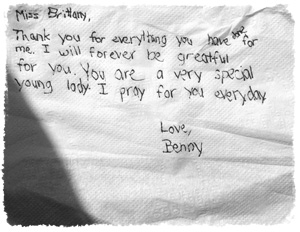 Miss Brittany,
Thank you for everything you have done for
me. I will forever be greatful
for you. You are a very special
young lady. I pray for you everyday
Love,
Penny